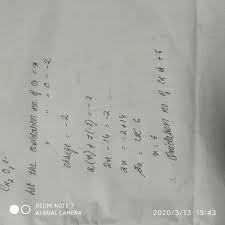 Cr2 O7 2-
let the oxidation no. of Cr = x
" " " O = -2
charge = -2
2(x) + 7(-2) = -2
2x - 14 = -2
2x = -2+14
x = 6
∴ oxidation no. of Cr is +6
REDMI NOTE 7
AI DUAL CAMERA
2020/3/13 19:43